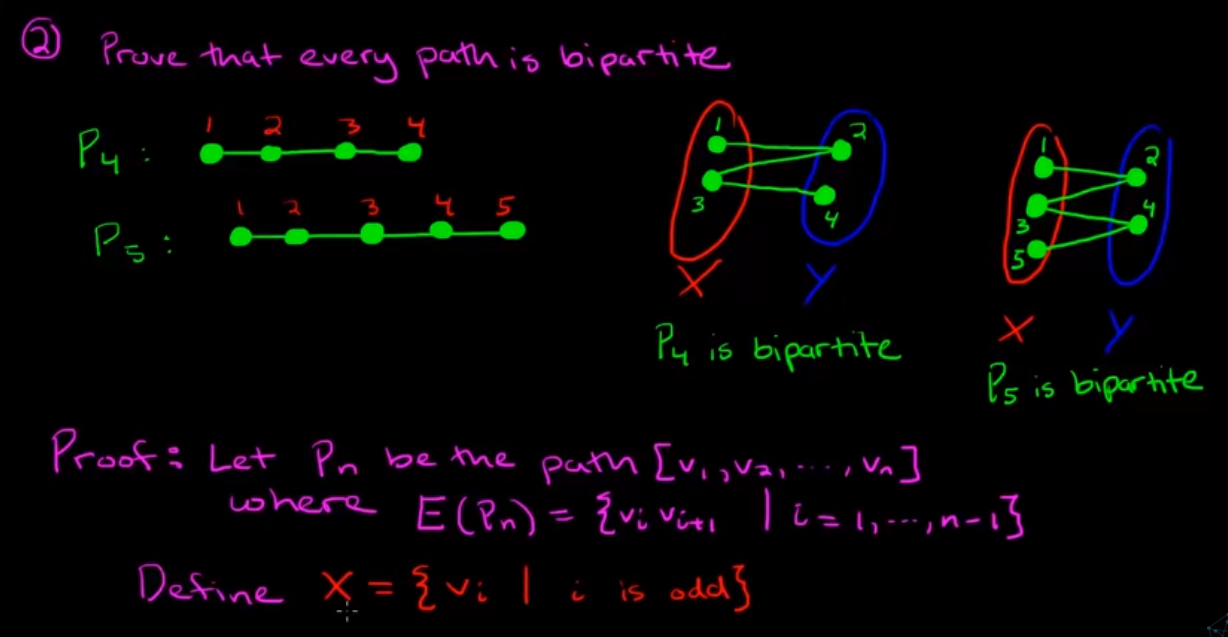 ② Prove that every path is bipartite
P₄ : 1 2 3 4
P₅ : 1 2 3 4 5
1 2 3 4
X Y
P₄ is bipartite
1 2 3 4 5
X Y
P₅ is bipartite
Proof: Let Pₙ be the path [v₁, v₂, ..., vₙ]
where E(Pₙ) = {vᵢ vᵢ₊₁ | i = 1, ..., n-1}
Define X = {vᵢ | i is odd}